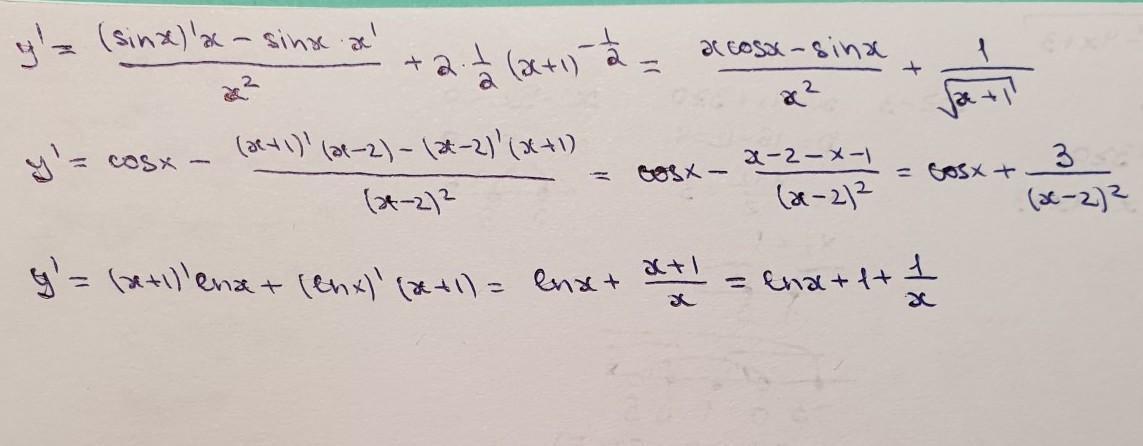 y' = \frac{(sinx)'x - sinx \cdot x'}{x^2} + 2 \cdot \frac{1}{2} (x+1)^{-\frac{1}{2}} = \frac{xcosx - sinx}{x^2} + \frac{1}{\sqrt{x+1}}
y' = cosx - \frac{(x+1)'(x-2) - (x-2)'(x+1)}{(x-2)^2} = cosx - \frac{x-2-x-1}{(x-2)^2} = cosx + \frac{3}{(x-2)^2}
y' = (x+1)'lnx + (lnx)'(x+1) = lnx + \frac{x+1}{x} = lnx + 1 + \frac{1}{x}